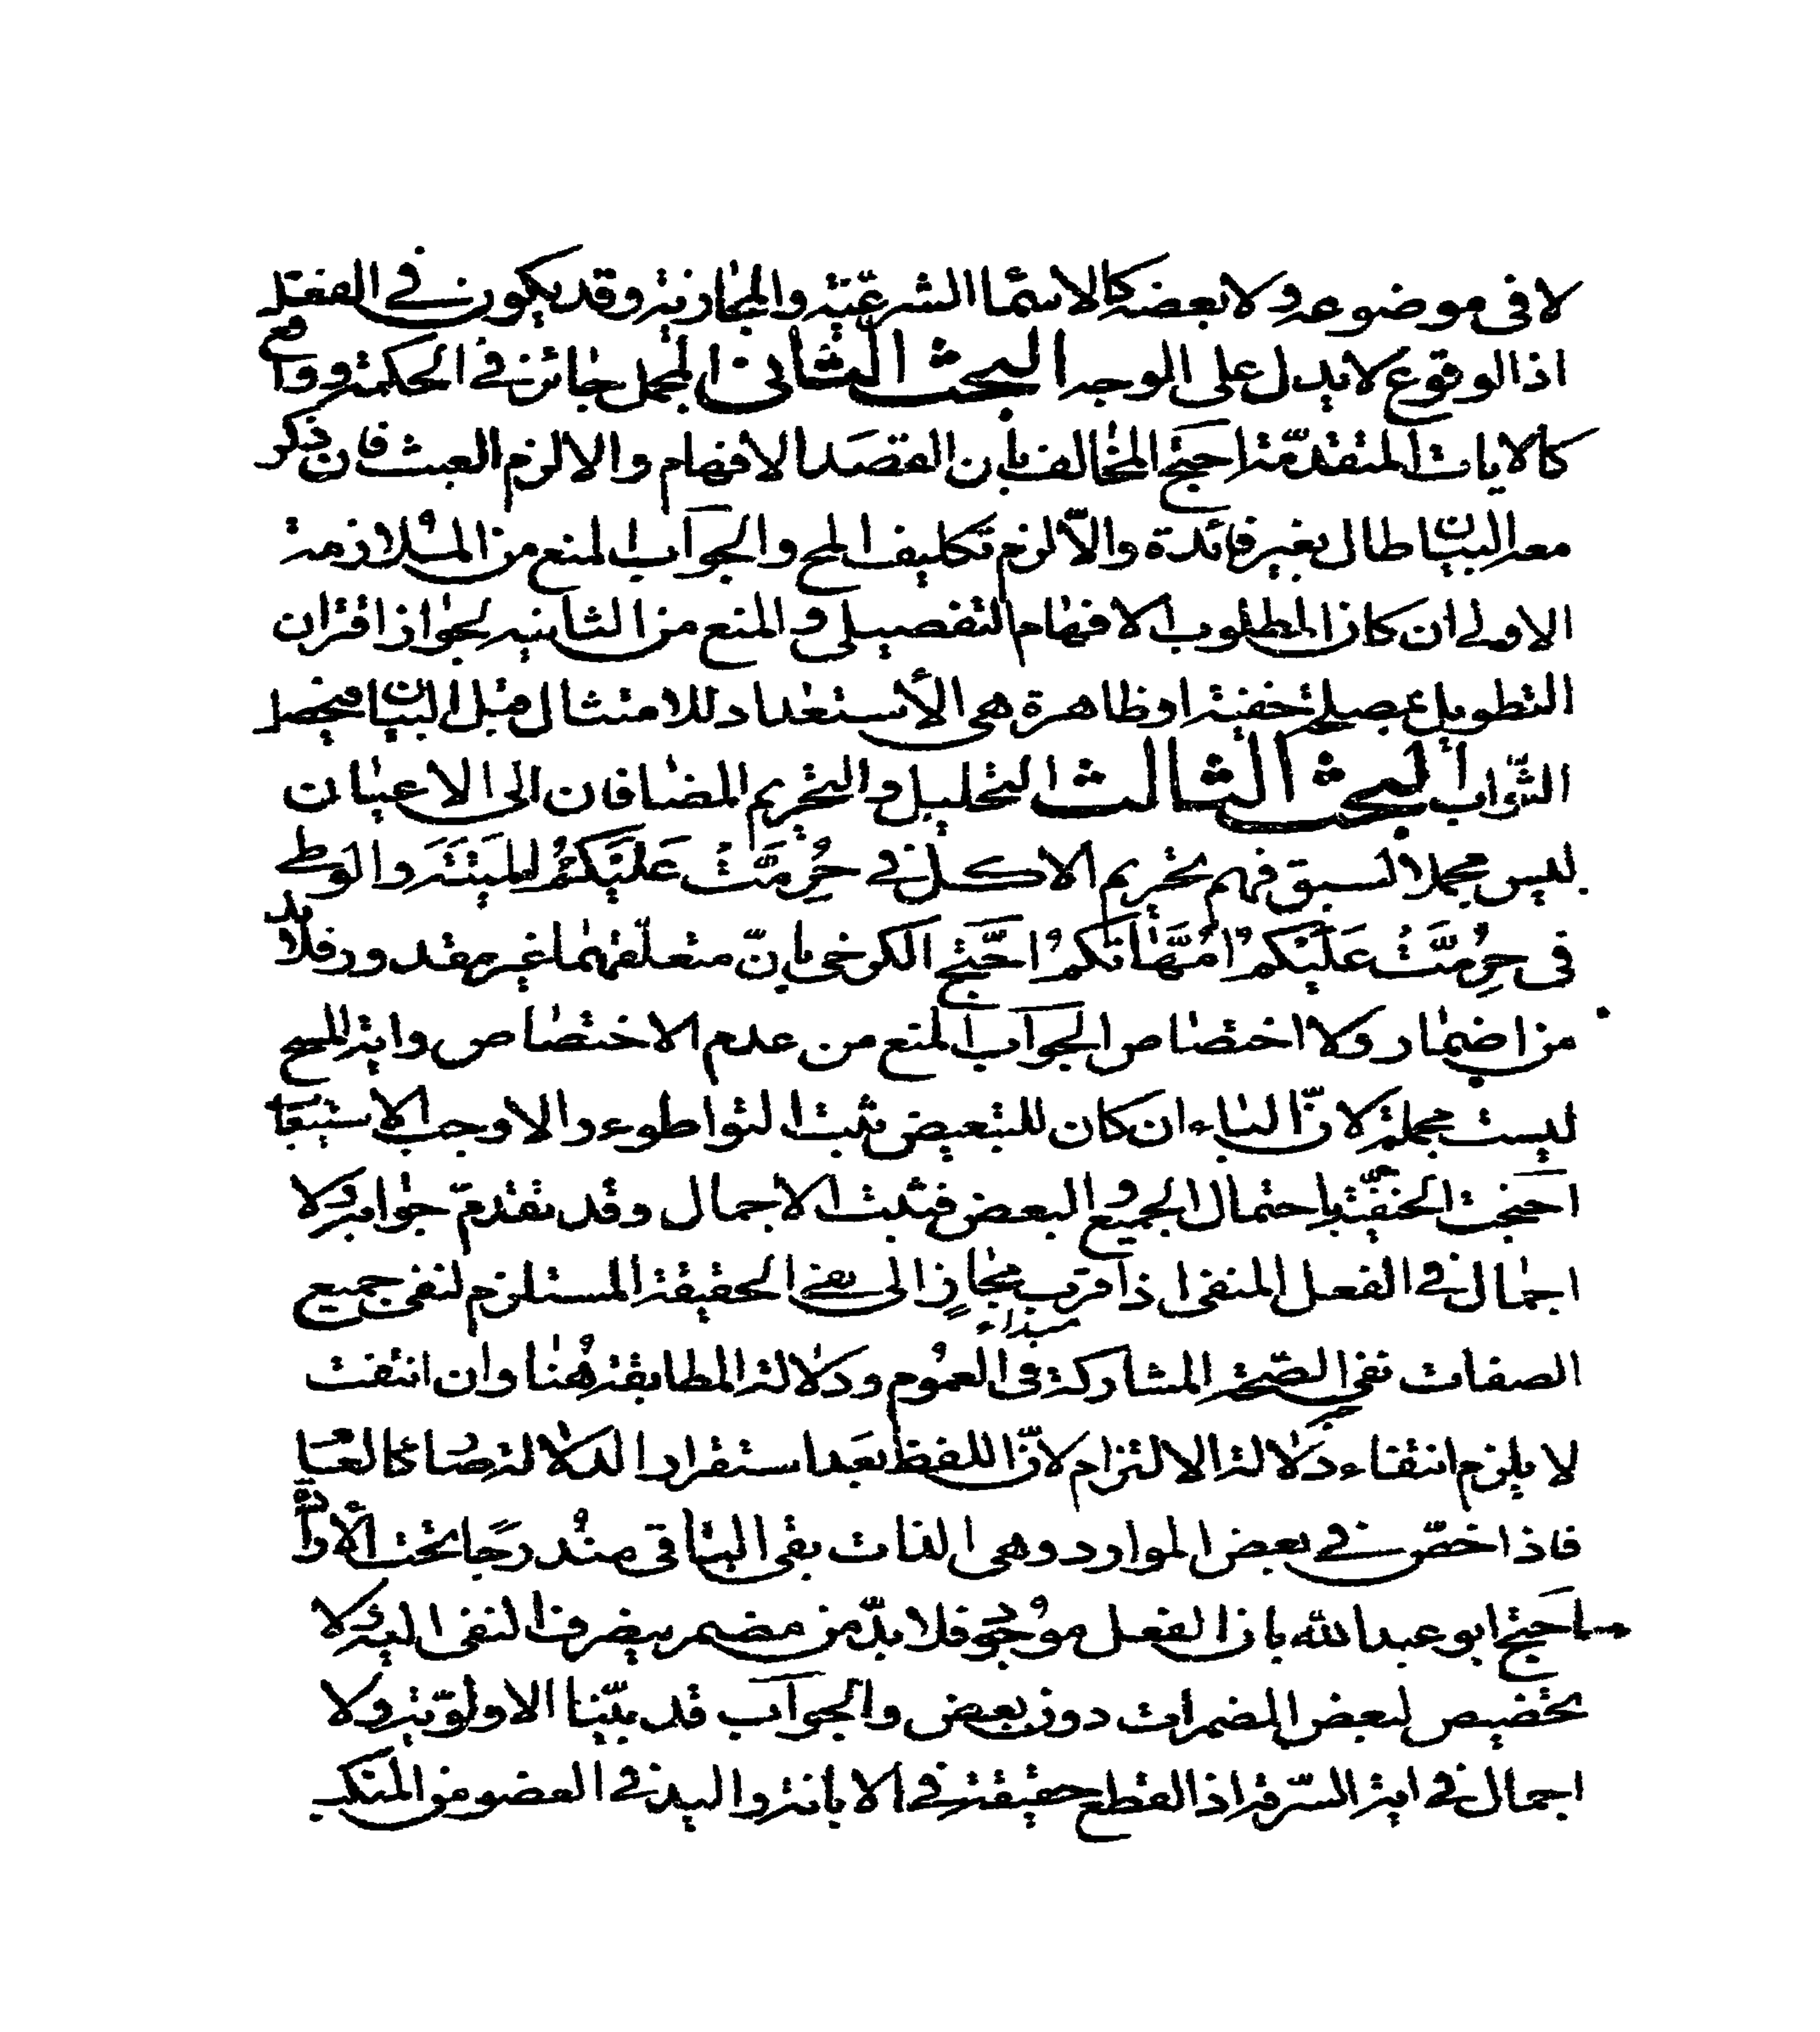 لا في موضوعه ولا بعضه كالاسما الشرعيّة والمجازية وقد يكون في الفعل
اذ الوقوع لا يدل على الوجه البحث الثاني المجمل جائز في الحكمة وواقع
كالايات المتقدّمة احتج المخالف بان القصد الافهام والا لزم العبث فان ذكر
معه البيان طال بغير فائدة والّا لزم تكليف المح والجواب المنع من الملازمة
الاولى ان كان المطلوب الافهام التفصيلي والمنع من الثانيه لجواز اقتران
التطويل بمصلحة خفية او ظاهرة هي الأستعداد للامتثال قبل البيان فيحصل
الثّواب البحث الثالث التحليل والتحريم المضافان الى الاعيان
ليس مجملا لسبق فهم تحريم الاكل في حُرِّمَتْ عَلَيْكُمُ المَيْتَةُ والوطي
في حُرِّمَتْ عَلَيْكُمْ اُمَّهَاتُكُمْ احتَّج الكرخي بانّ متعلّقهما غير مقدور فلا بد
من اضمار ولا اختصاص الجواب المنع من عدم الاختصاص واية المسح
ليست مجملة لانّ الباء ان كان للتبعيض ثبت التواطوء والا وجب الاستيعا
احتجت الحنفيّة باحتمال الجميع والبعض فثبت الاجمال وقد تقدّم جوابه ولا
اجمال في الفعل المنفى اذا قرب مجازٍ الى نفى الحقيقة المستلزم لنفي جميع
الصفات نفى الصّحة المشاركة في العمُوم ودلالة المطابقة هُنا وان انتفت
لا يلزم انتفاء دلالة الالتزام لانّ اللفظ بعَد استقرار الدلالة صار كالعا
فاذا خصّ في بعض الموارد وهى الذات بقى الباقي مندرجًا تحت الأرادة
احتج ابو عبد الله بان الفعل موجود فلا بدّ من مضمر يصرف النفى اليه ولا
تخصيص لبعض المضمرات دون بعض والجواب قد بيّنا الاولوّية ولا
اجمال في اية السّرقة اذ القطع حقيقة في الابانة واليد في العضو من المنكب